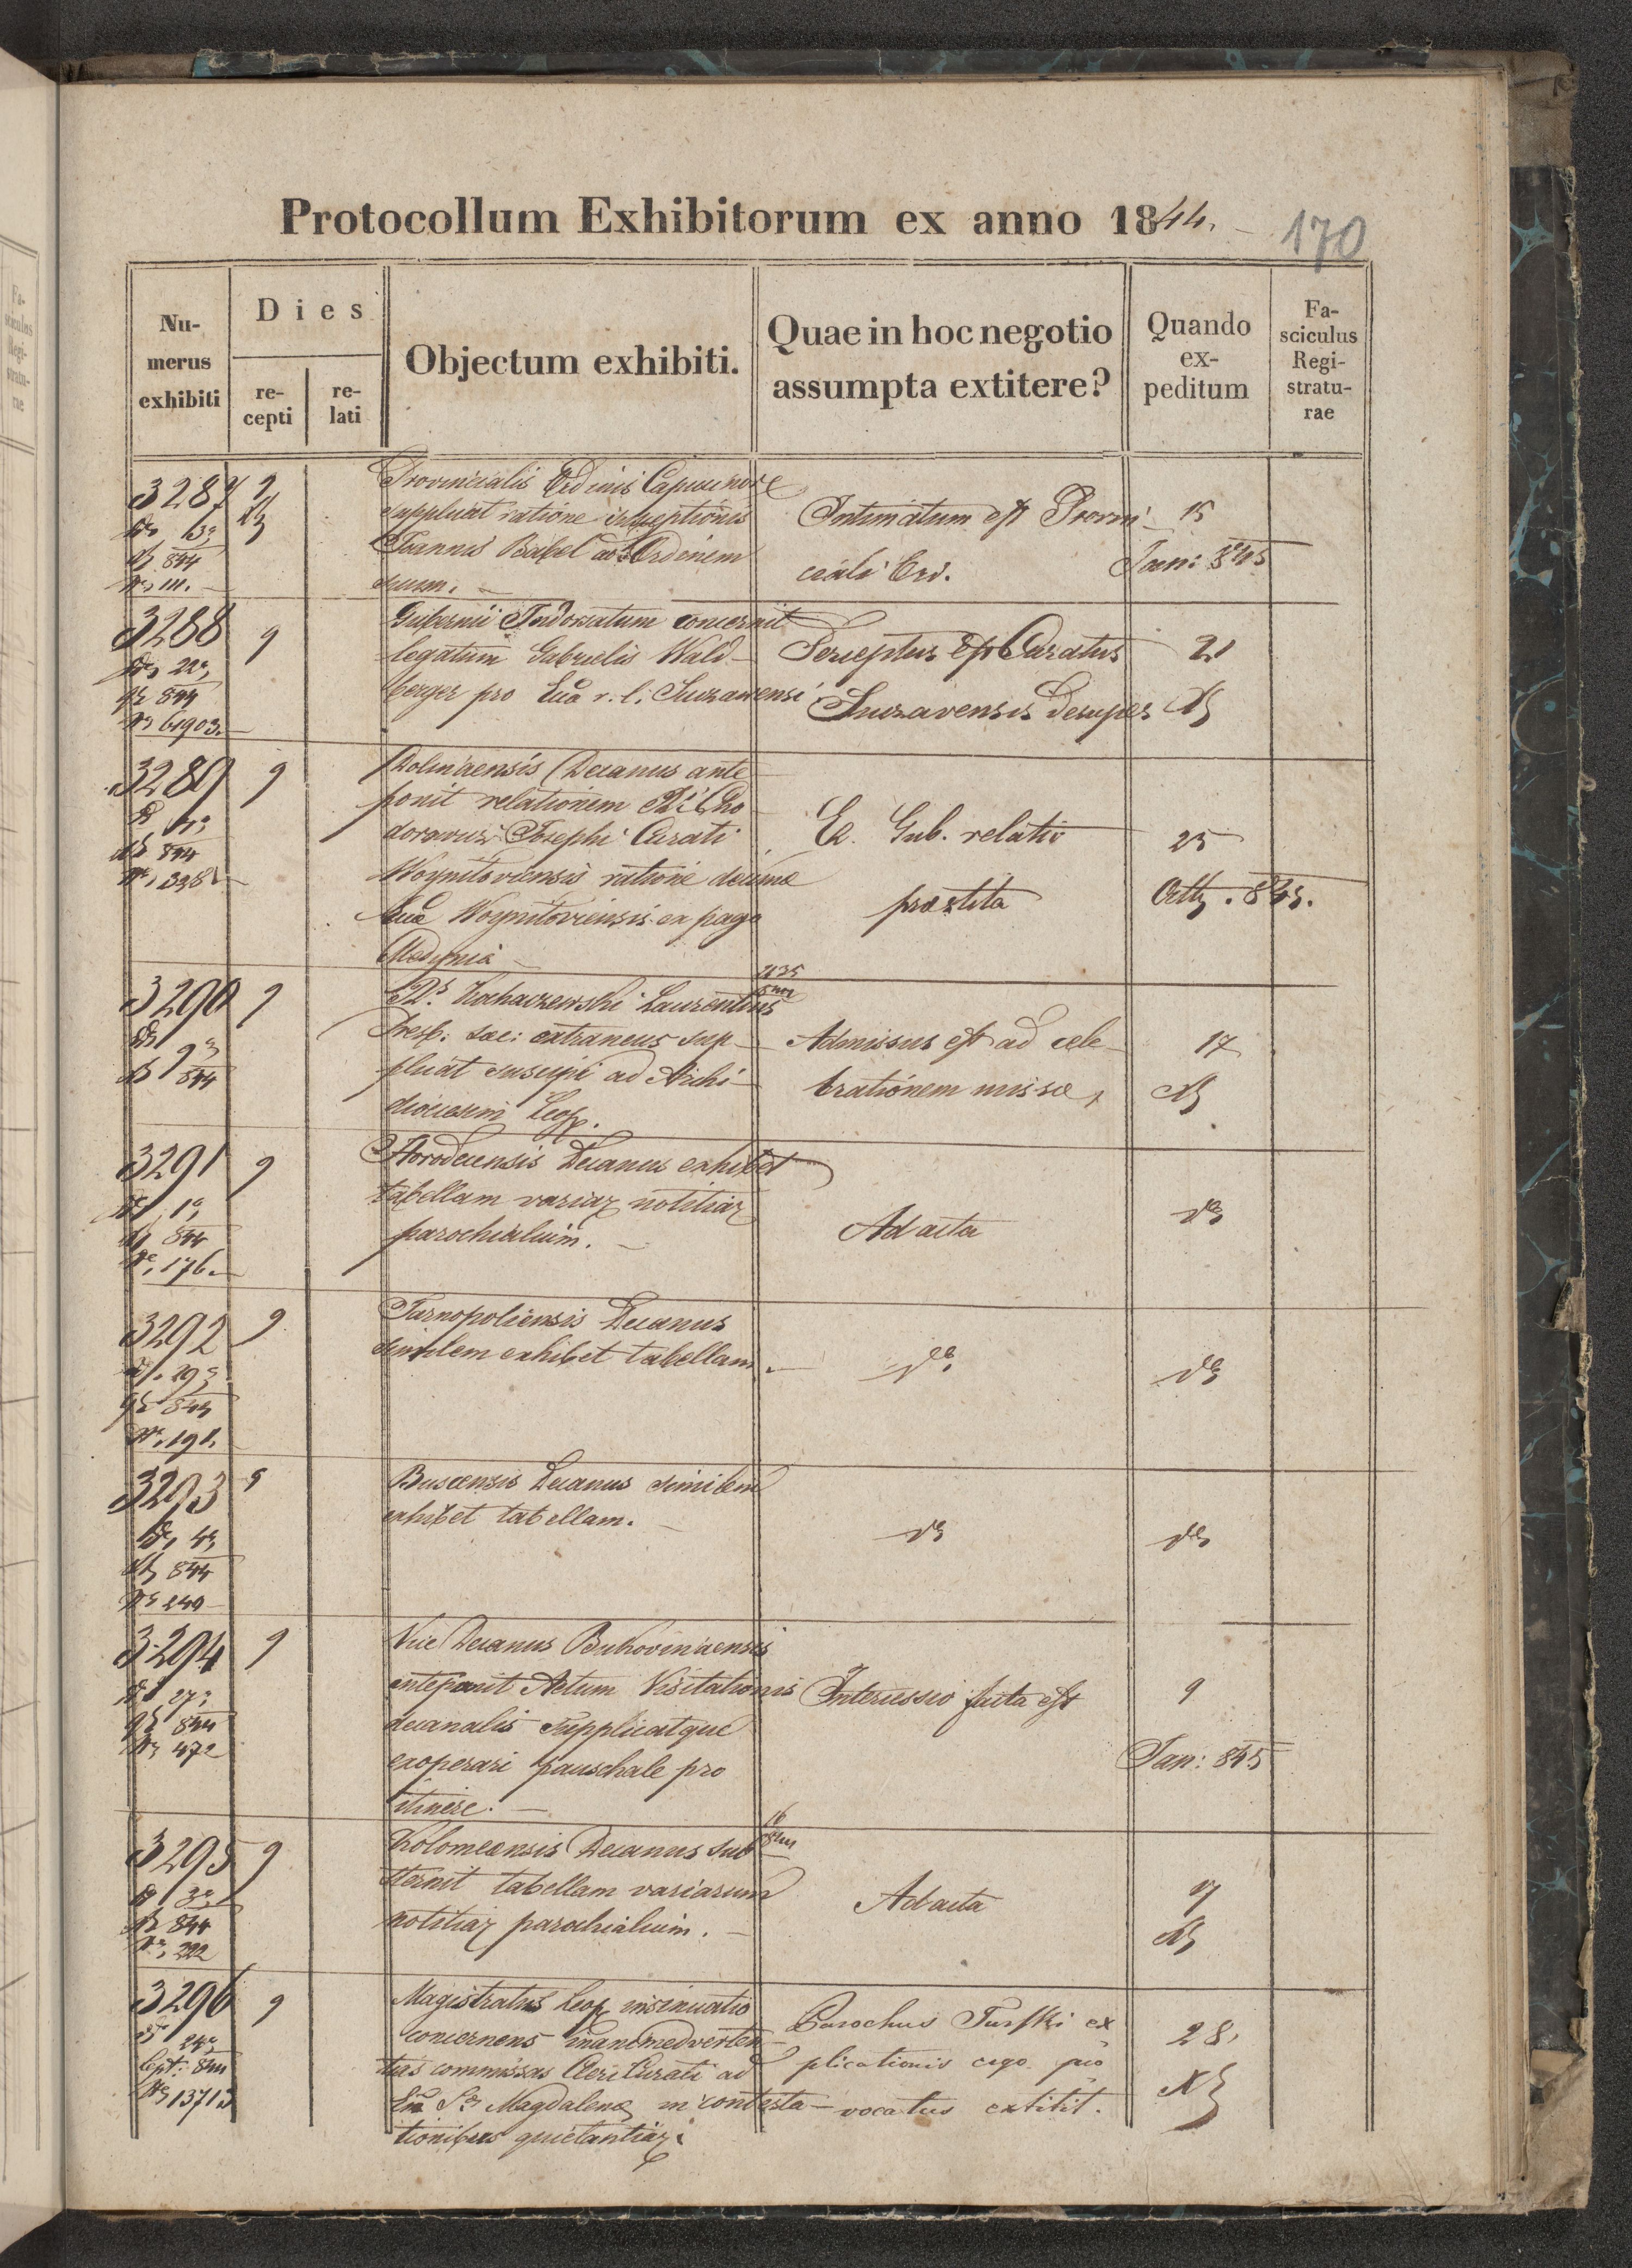 Protocollum Exhibitorum ex anno 1844.
170
Nu-
merus
exhibiti
Dies
re-
cepti
re-
lati
Objectum exhibiti.
Quae in hoc negotio
assumpta extitere?
Quando
ex-
peditum
Fa-
sciculus
Regi-
stratu-
rae
3287 9
844
Nr 111.
Provincialis Ordinis
supplicat ratione susceptionis
Joannis Babel ad Ordinem
suum.
Intimatum est Provin-
ciali Ord.
15
Jan: 845
3288 9
844
Nr 61903.
Gubernii Indorsatum concernit
legatum Gabrielis Wald-
berger pro r. l. Suczawensi
Curatus
Suczavensis desuper
21
3289 9
844
Nr 338
Dolinaensis Decanus ante
ponit relationem Cho-
dorowicz Josephi Curati
Woynitoviensis ratione decimae
Woynitoviensis ex pago
Medynia
Gub. relatio
praestita
25
845.
3290 9
9
844
Laurentius
Presb: sae: extraneus sup-
plicat suscipi ad Archi-
diocesim Leop.
1835
Admissus est ad cele-
brationem missae
17
3291 9
1
844
Nr. 176.
Horodecensis Decanus exhibet
tabellam variar notitiar
parochialium.
Ad acta
do
3292 9
29
844
Nr. 191.
Tarnopoliensis Decanus
similem exhibet tabellam.
do
do
3293 9
4
844
Nr 240
Buscensis Decanus similem
exhibet tabellam.
do
do
3294 9
27
844
Nr 472
Vice Decanus Bukovinaensis
anteponit Actum Visitationis
decanalis supplicatque
exoperari pauschale pro
itinere.
Intercessio facta est
9
Jan: 845
3295 9
3
844
Nr. 222
Kolomeensis Decanus sub
sternit tabellam variarum
notitiar parochialium.
Ad acta
3296 9
24
Sept: 844
Nr 13713
Magistratus Leop. insinuatio
concernens inanimadverten-
tias commissas Cleri Curati ad
Magdalenae in contesta-
tionibus quietantiar.
Parochus Turski ex
plicationis ergo pro
vocatus extitit.
28